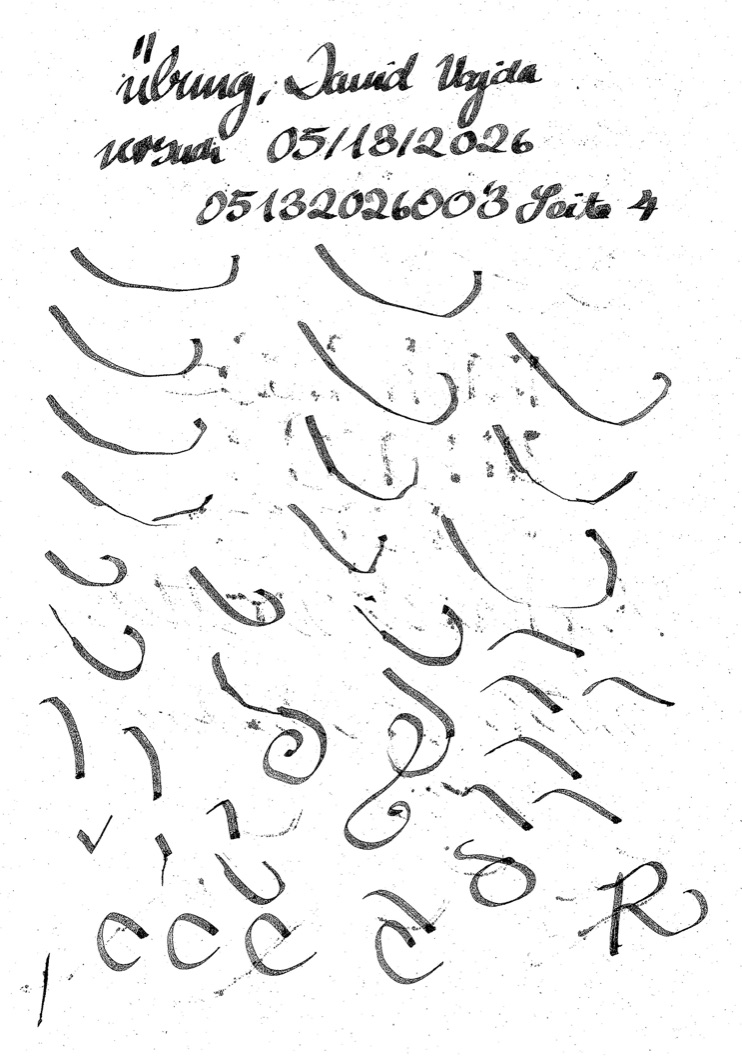 Übung, David Vajda
versuch 05/18/2026
05132026003 Seite 4
R